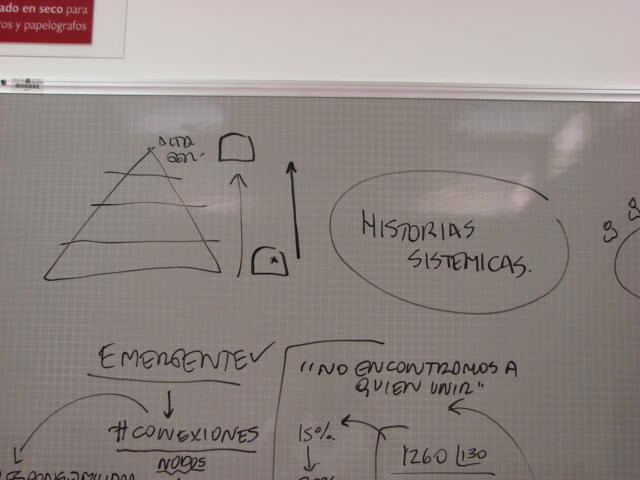 ado en seco para
ros y papelógrafos
ALTA
GER.
HISTORIAS
SISTEMICAS.
EMERGENTE
"NO ENCONTRAMOS A
QUIEN UNIR"
#CONEXIONES
NODOS
15%.
1260 130